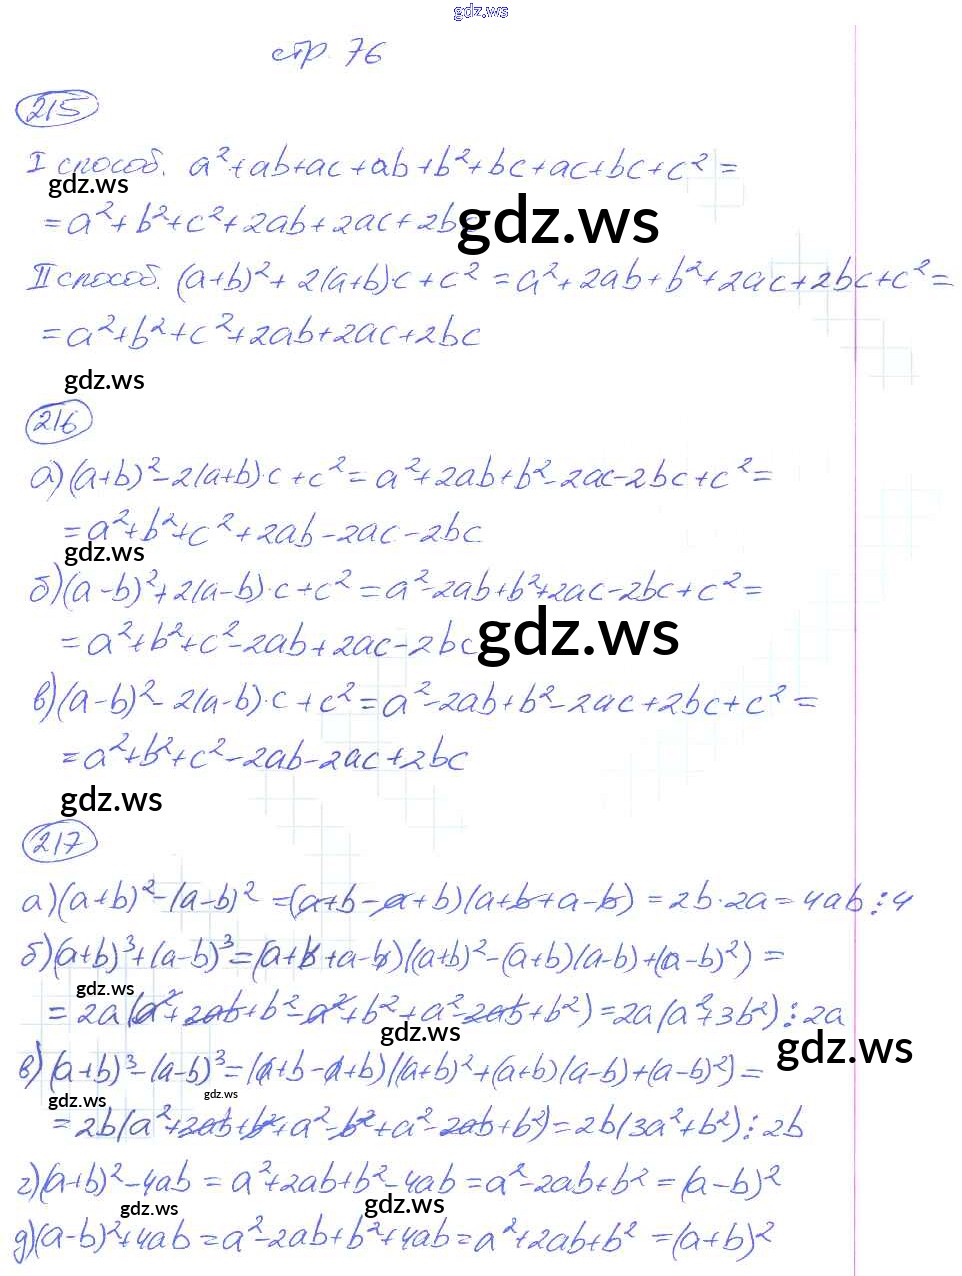 gdz.ws
стр. 76
215
I способ. a²+ab+ac+ab+b²+bc+ac+bc+c²=
gdz.ws
=a²+b²+c²+2ab+2ac+2bc gdz.ws
II способ. (a+b)²+2(a+b)·c+c²=a²+2ab+b²+2ac+2bc+c²=
=a²+b²+c²+2ab+2ac+2bc
gdz.ws
216
а)(a+b)²-2(a+b)·c+c²=a²+2ab+b²-2ac-2bc+c²=
=a²+b²+c²+2ab-2ac-2bc
gdz.ws
б)(a-b)²+2(a-b)·c+c²=a²-2ab+b²+2ac-2bc+c²=
=a²+b²+c²-2ab+2ac-2bc gdz.ws
в)(a-b)²-2(a-b)·c+c²=a²-2ab+b²-2ac+2bc+c²=
=a²+b²+c²-2ab-2ac+2bc
gdz.ws
217
а)(a+b)²-(a-b)²=(a+b-a+b)(a+b+a-b)=2b·2a=4ab⋮4
б)(a+b)³+(a-b)³=(a+b+a-b)((a+b)²-(a+b)(a-b)+(a-b)²)=
gdz.ws
=2a(a²+2ab+b²-a²+b²+a²-2ab+b²)=2a(a²+3b²)⋮2a
gdz.ws gdz.ws
в)(a+b)³-(a-b)³=(a+b-a+b)((a+b)²+(a+b)(a-b)+(a-b)²)=
gdz.ws gdz.ws
=2b(a²+2ab+b²+a²-b²+a²-2ab+b²)=2b(3a²+b²)⋮2b
г)(a+b)²-4ab=a²+2ab+b²-4ab=a²-2ab+b²=(a-b)²
gdz.ws gdz.ws
д)(a-b)²+4ab=a²-2ab+b²+4ab=a²+2ab+b²=(a+b)²